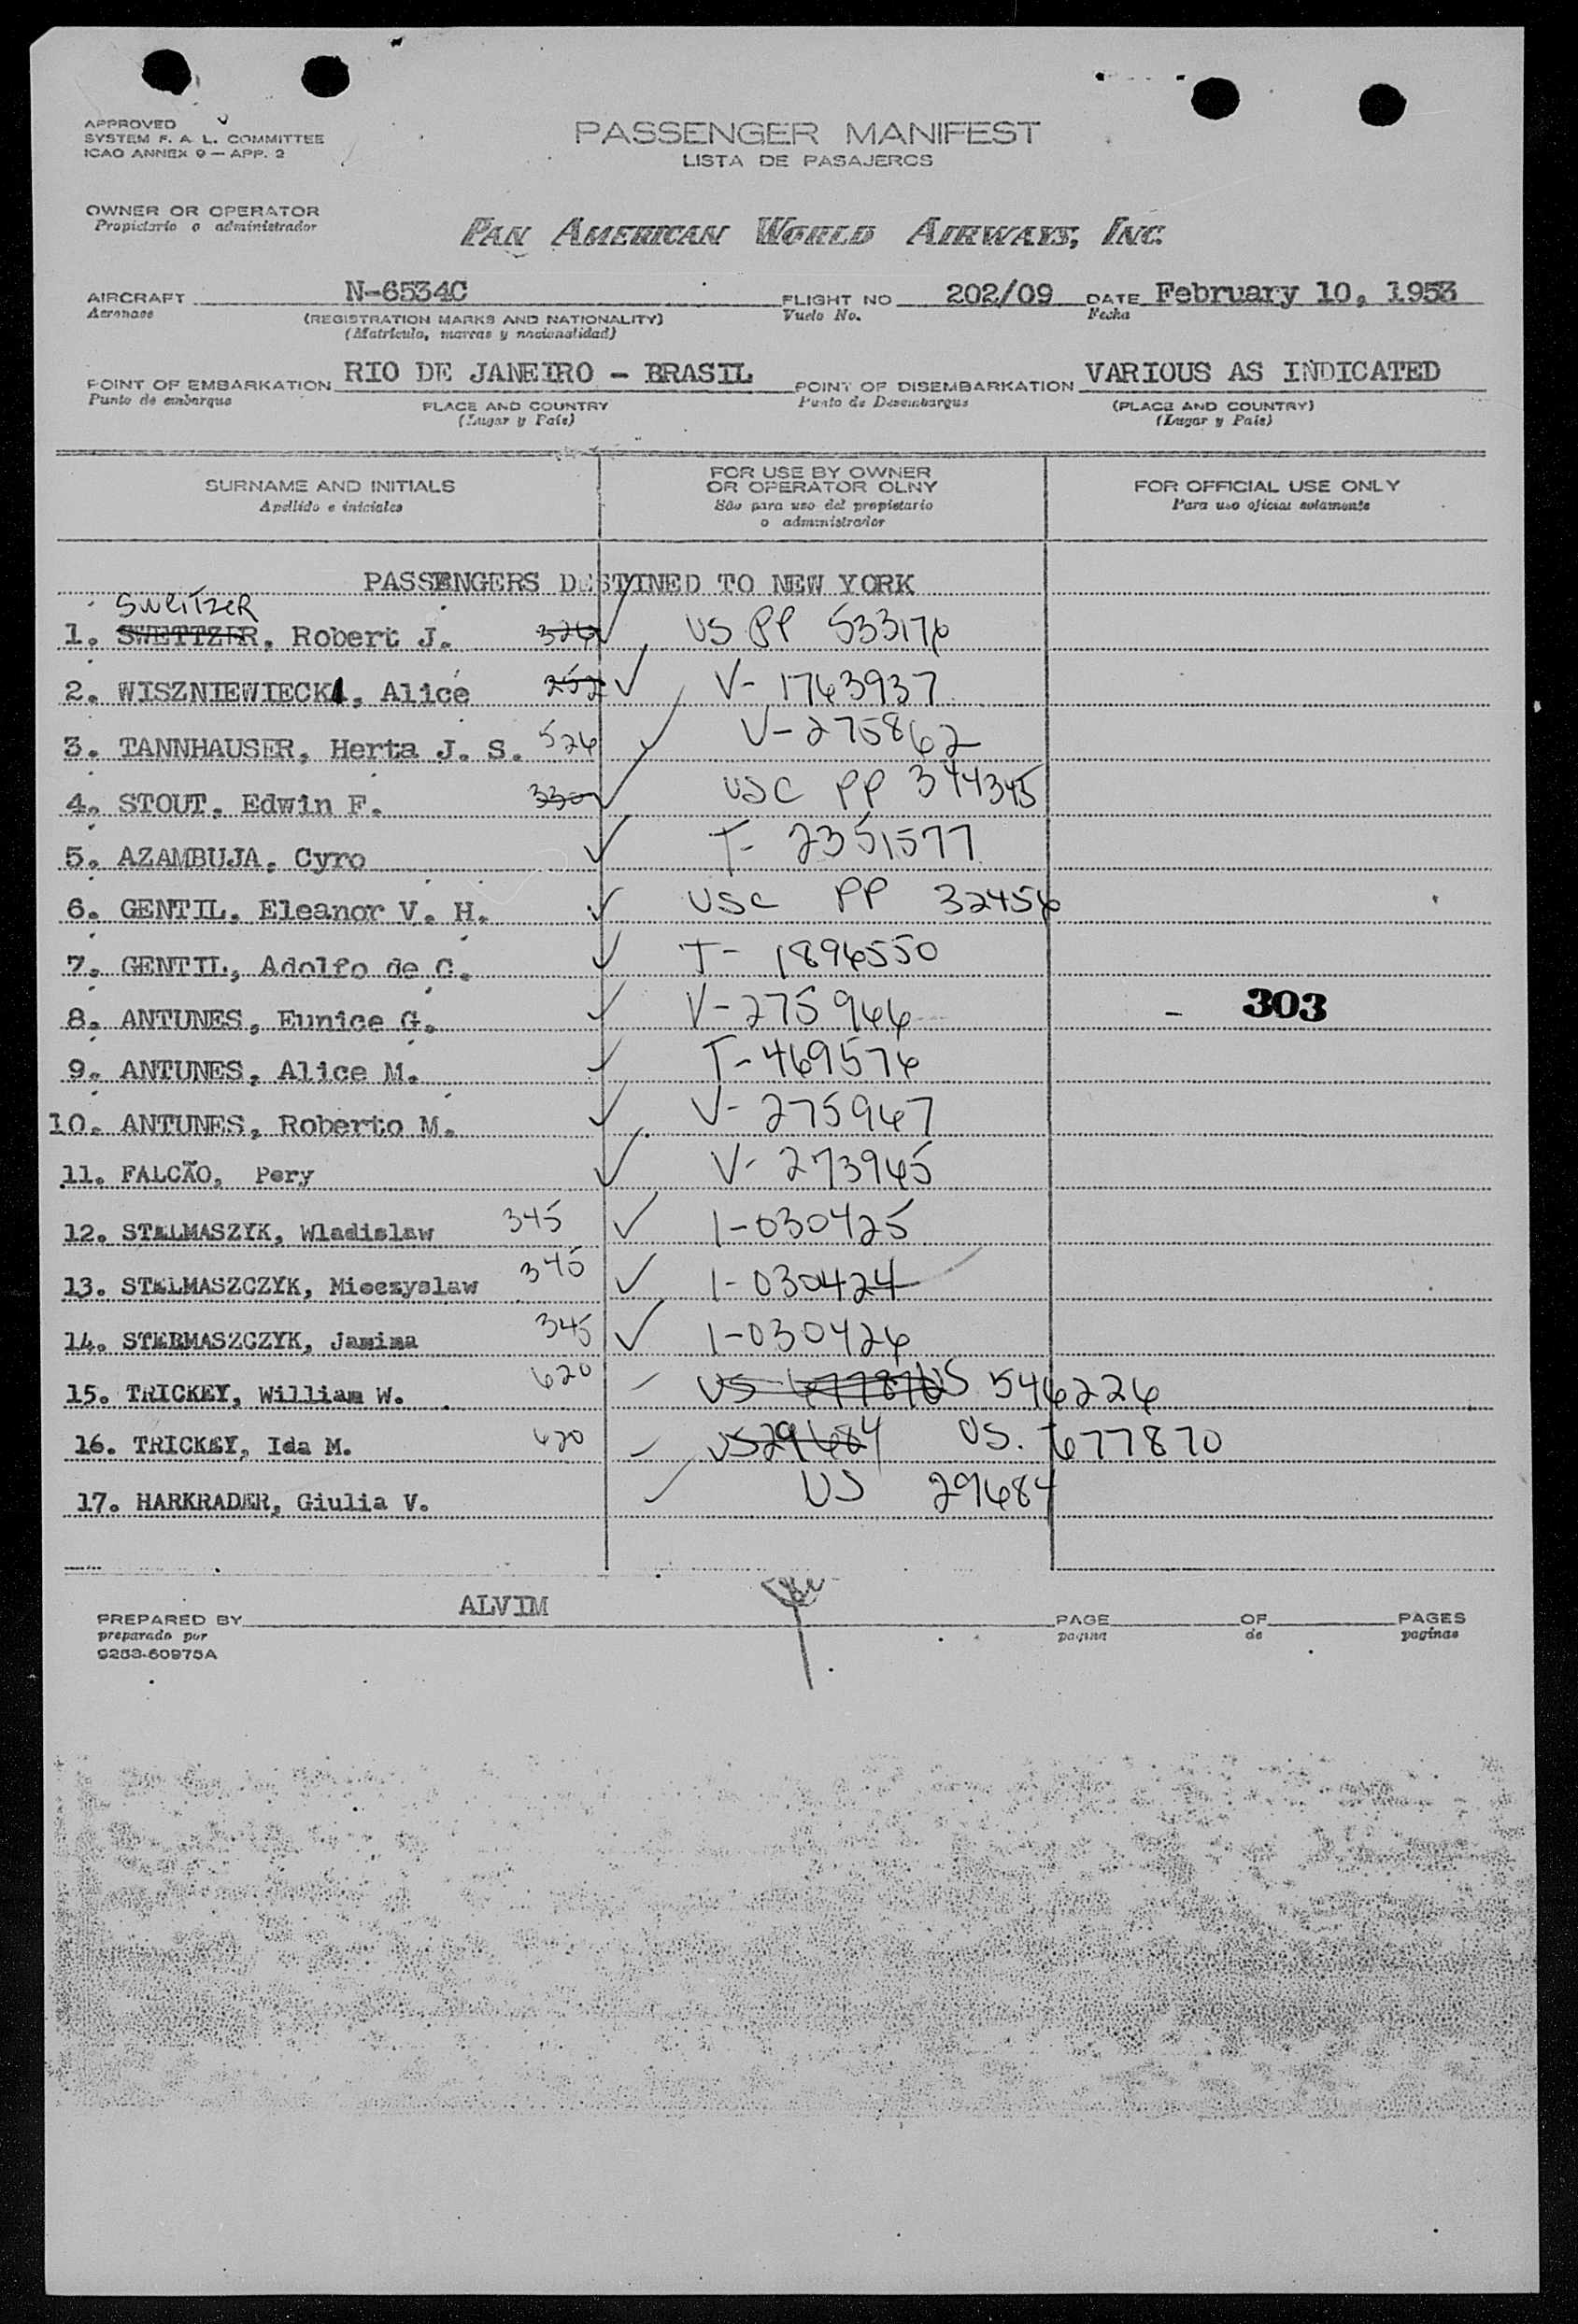 APPROVED
SYSTEM F. A. L. COMMITTEE
ICAO ANNEX 9 — APP. 2
PASSENGER MANIFEST
LISTA DE PASAJEROS
OWNER OR OPERATOR
Propietario o administrador
PAN AMERICAN WORLD AIRWAYS, INC.
AIRCRAFT N-6534C FLIGHT NO 202/09 DATE February 10, 1953
Aeronave (REGISTRATION MARKS AND NATIONALITY) Vuelo No. Fecha
(Matricula, marcas y nacionalidad)
POINT OF EMBARKATION RIO DE JANEIRO - BRASIL POINT OF DISEMBARKATION VARIOUS AS INDICATED
Punto de embarque PLACE AND COUNTRY Punto de Desembarque (PLACE AND COUNTRY)
(Lugar y País) (Lugar y País)
SURNAME AND INITIALS FOR USE BY OWNER OR OPERATOR OLNY FOR OFFICIAL USE ONLY
Apellido e iniciales Sólo para uso del propietario o administrador Para uso oficial solamente
PASSENGERS DESTINED TO NEW YORK
SWEITZER
1. SWETTZER, Robert J. 326 ✓ US PP 533176
2. WISZNIEWIECKI, Alice 252 ✓ V- 1763937
3. TANNHAUSER, Herta J. S. 526 ✓ V-275862
4. STOUT, Edwin F. 330 ✓ USC PP 344345
5. AZAMBUJA, Cyro ✓ T- 2351577
6. GENTIL, Eleanor V. H. ✓ USC PP 32456
7. GENTIL, Adolfo de C. ✓ T- 1896550
8. ANTUNES, Eunice G. ✓ V-275966 - 303
9. ANTUNES, Alice M. ✓ T-469576
10. ANTUNES, Roberto M. ✓ V- 275967
11. FALCÃO, Pery ✓ V- 273965
12. STELMASZYK, Wladislaw 345 ✓ I-030425
13. STELMASZCZYK, Mieczyslaw 345 ✓ I-030424
14. STEBMASZCZYK, Janina 345 ✓ I-030426
15. TRICKEY, William W. 620 ✓ US 677870 US 546226
16. TRICKEY, Ida M. 620 ✓ US29684 US. 677870
17. HARKRADER, Giulia V. ✓ US 29684
PREPARED BY ALVIM PAGE OF PAGES
preparado por pagina de paginas
9253-60975A